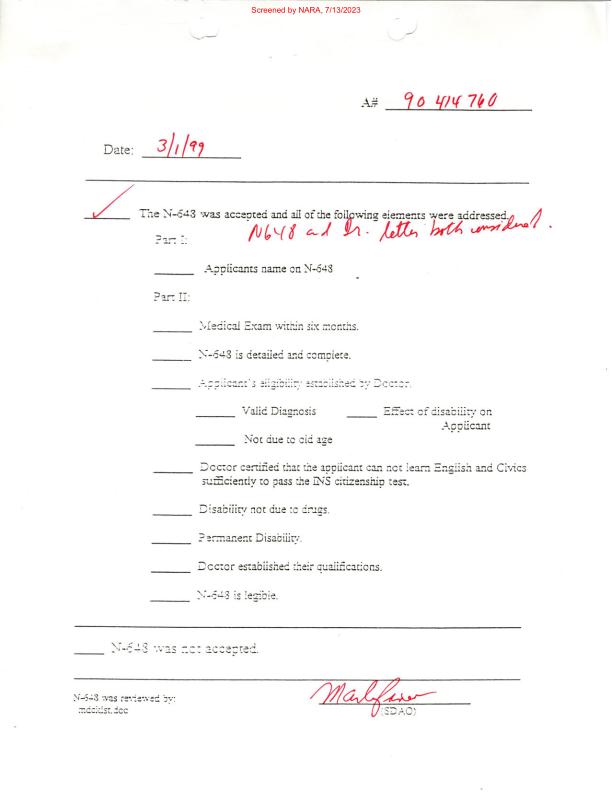 Screened by NARA, 7/13/2023
A# 90 414 760
Date: 3/1/99
✓ The N-648 was accepted and all of the following elements were addressed.
N648 and Dr. letter both considered.
Part I:
Applicants name on N-648
Part II:
Medical Exam within six months.
N-648 is detailed and complete.
Applicant's eligibility established by Doctor.
Valid Diagnosis Effect of disability on
Applicant
Not due to old age
Doctor certified that the applicant can not learn English and Civics
sufficiently to pass the INS citizenship test.
Disability not due to drugs.
Permanent Disability.
Doctor established their qualifications.
N-648 is legible.
N-648 was not accepted.
N-648 was reviewed by:
mdcklst.doc (SDAO)